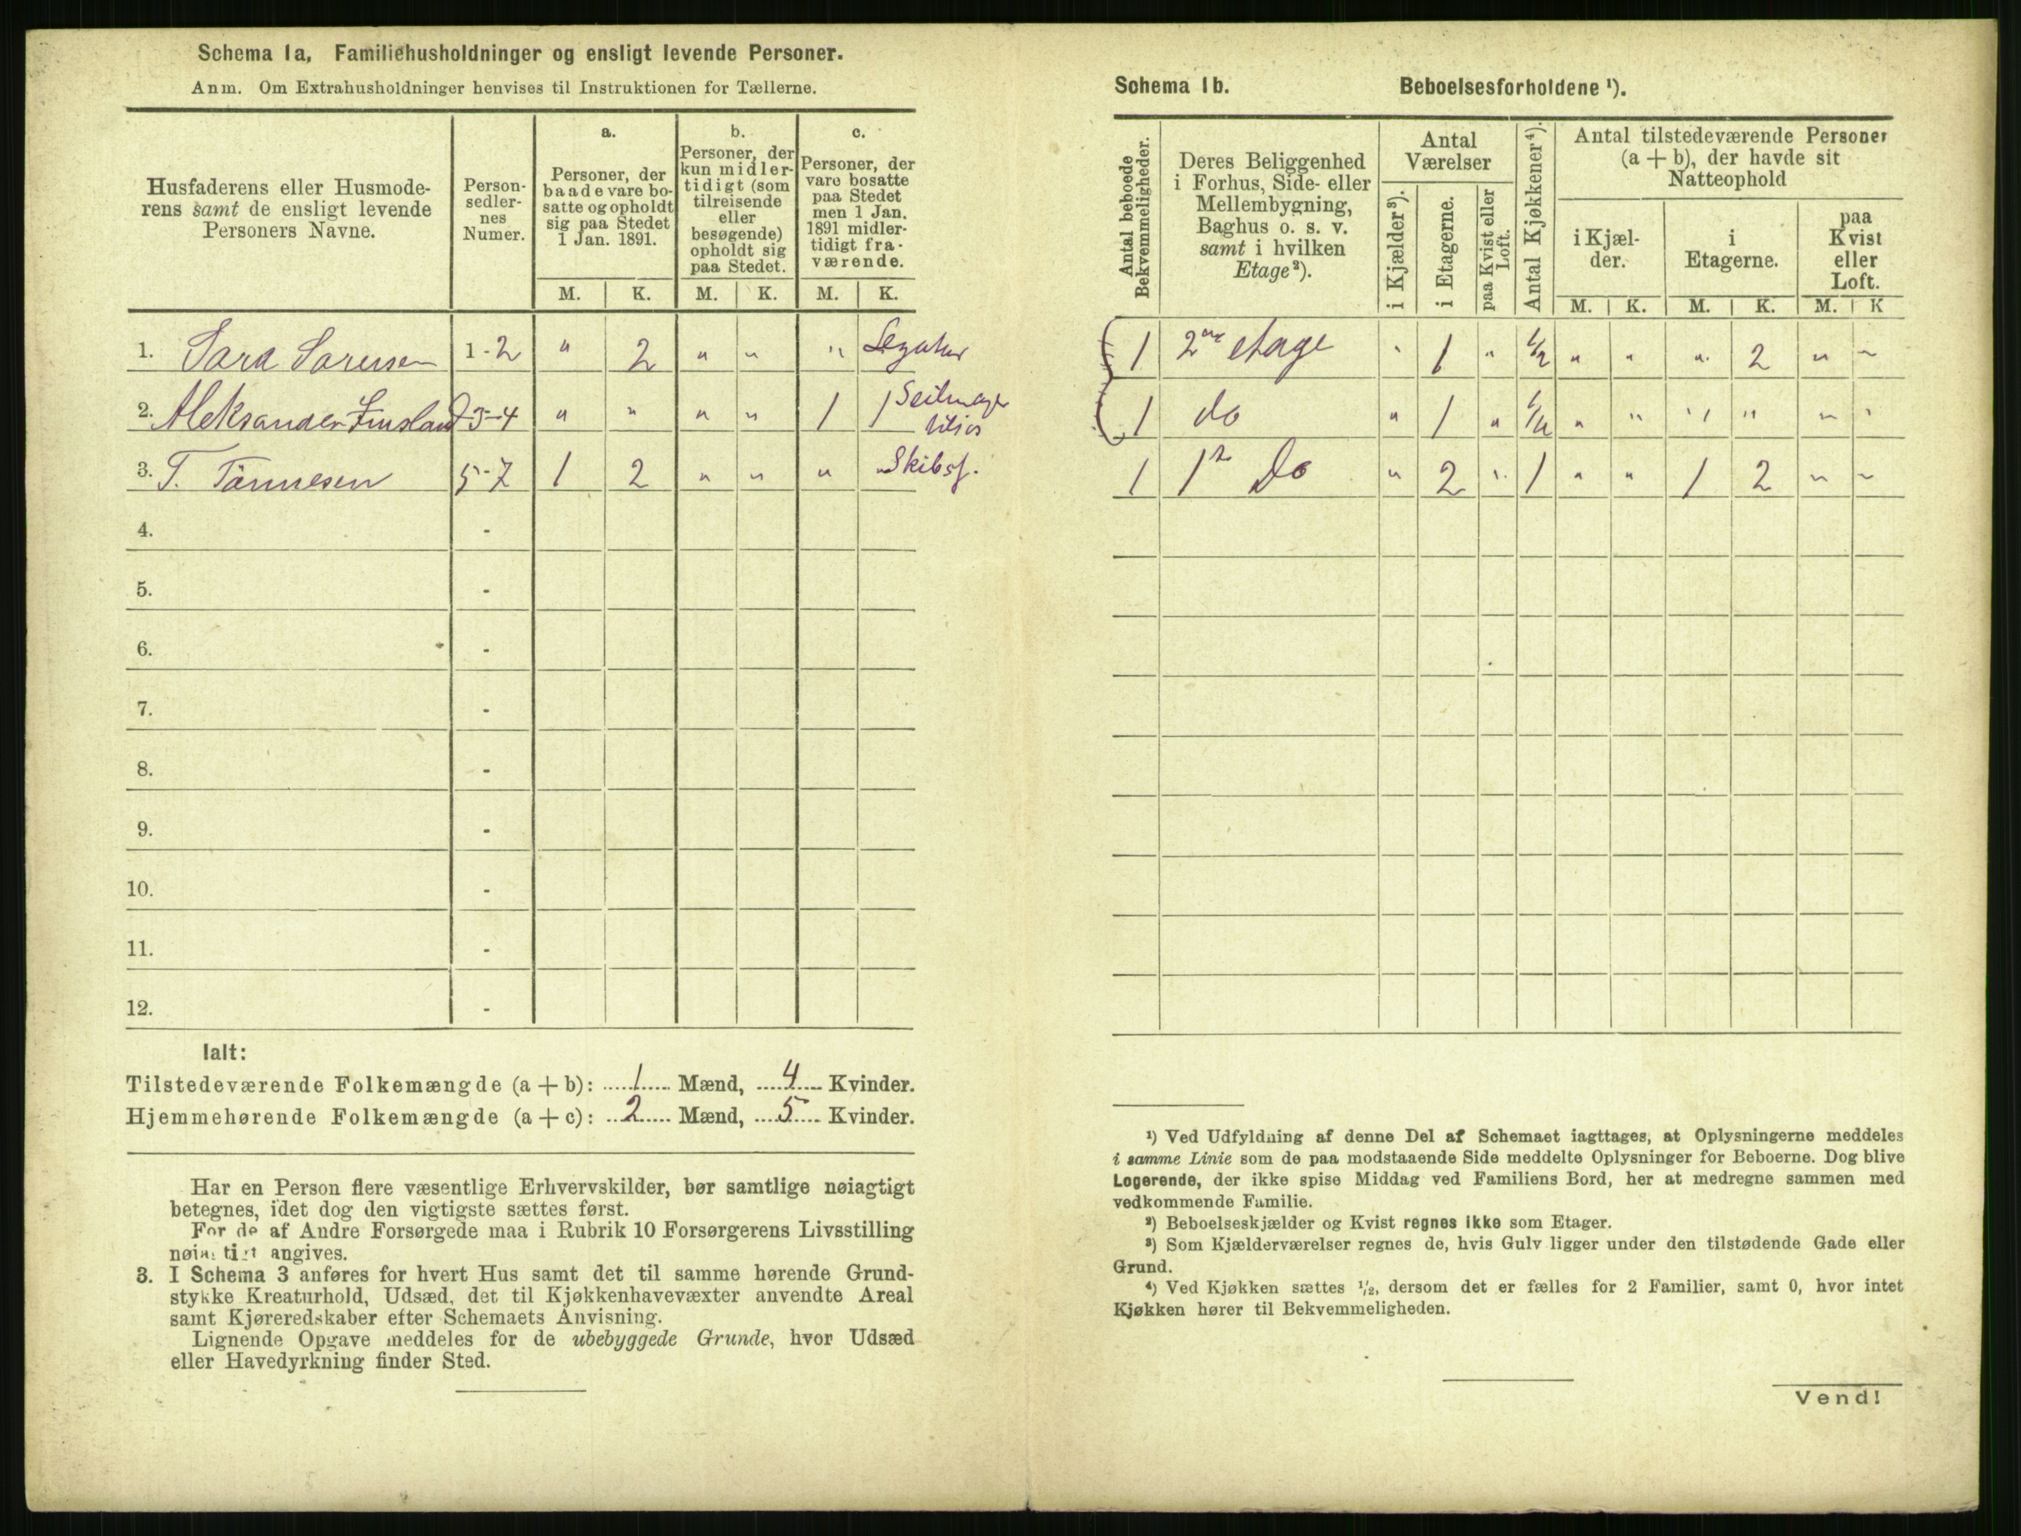 Schema 1a, Familiehusholdninger og ensligt levende Personer.
Anm. Om Extrahusholdninger henvises til Instruktionen for Tællerne.
Husfaderens eller Husmode-
rens samt de ensligt levende
Personers Navne.
Person-
sedler-
nes
Numer.
a.
Personer, der
baade vare bo-
satte og opholdt
sig paa Stedet
1 Jan. 1891.
b.
Personer, der
kun midler-
tidigt (som
tilreisende
eller
besøgende)
opholdt sig
paa Stedet.
c.
Personer, der
vare bosatte
paa Stedet
men 1 Jan.
1891 midler-
tidigt fra-
værende.
M. K. M. K. M. K.
1. Sara Sørensen 1-2 " 2 " " "
2. Aleksander Finsland 3-4 " " " " 1 1 Seilmager
3. T. Tønnesen 5-7 1 2 " " " " Skibsf.
4. -
5. -
6. -
7. -
8. -
9. -
10. -
11. -
12. -
Ialt:
Tilstedeværende Folkemængde (a + b): 1 Mænd, 4 Kvinder.
Hjemmehørende Folkemængde (a + c): 2 Mænd, 5 Kvinder.
Har en Person flere væsentlige Erhvervskilder, bør samtlige nøiagtigt
betegnes, idet dog den vigtigste sættes først.
For de af Andre Forsørgede maa i Rubrik 10 Forsørgerens Livsstilling
nøiagtigt angives.
3. I Schema 3 anføres for hvert Hus samt det til samme hørende Grund-
stykke Kreaturhold, Udsæd, det til Kjøkkenhavevæxter anvendte Areal
samt Kjøreredskaber efter Schemaets Anvisning.
Lignende Opgave meddeles for de ubebyggede Grunde, hvor Udsæd
eller Havedyrkning finder Sted.
Schema 1b. Beboelsesforholdene ¹).
Antal beboede
Bekvemmeligheder.
Deres Beliggenhed
i Forhus, Side- eller
Mellembygning,
Baghus o. s. v.
samt i hvilken
Etage²).
Antal
Værelser
i Kjælder³).
i Etagerne.
paa Kvist eller
Loft.
Antal Kjøkkener⁴).
Antal tilstedeværende Personer
(a + b), der havde sit
Natteophold
i Kjæl-
der.
i
Etagerne.
paa
Kvist
eller
Loft.
M. K. M. K. M. K
1 2den etage " 1 " 1/2 " " " 2 " "
1 do " 1 " 1/2 " " " " " "
1 1ste Do " 2 " 1 " " 1 2 " "
¹) Ved Udfyldning af denne Del af Schemaet iagttages, at Oplysningerne meddeles
i samme Linie som de paa modstaaende Side meddelte Oplysninger for Beboerne. Dog blive
Logerende, der ikke spise Middag ved Familiens Bord, her at medregne sammen med
vedkommende Familie.
²) Beboelseskjælder og Kvist regnes ikke som Etager.
³) Som Kjælderværelser regnes de, hvis Gulv ligger under den tilstødende Gade eller
Grund.
⁴) Ved Kjøkken sættes ¹/₂, dersom det er fælles for 2 Familier, samt 0, hvor intet
Kjøkken hører til Bekvemmeligheden.
Vend!